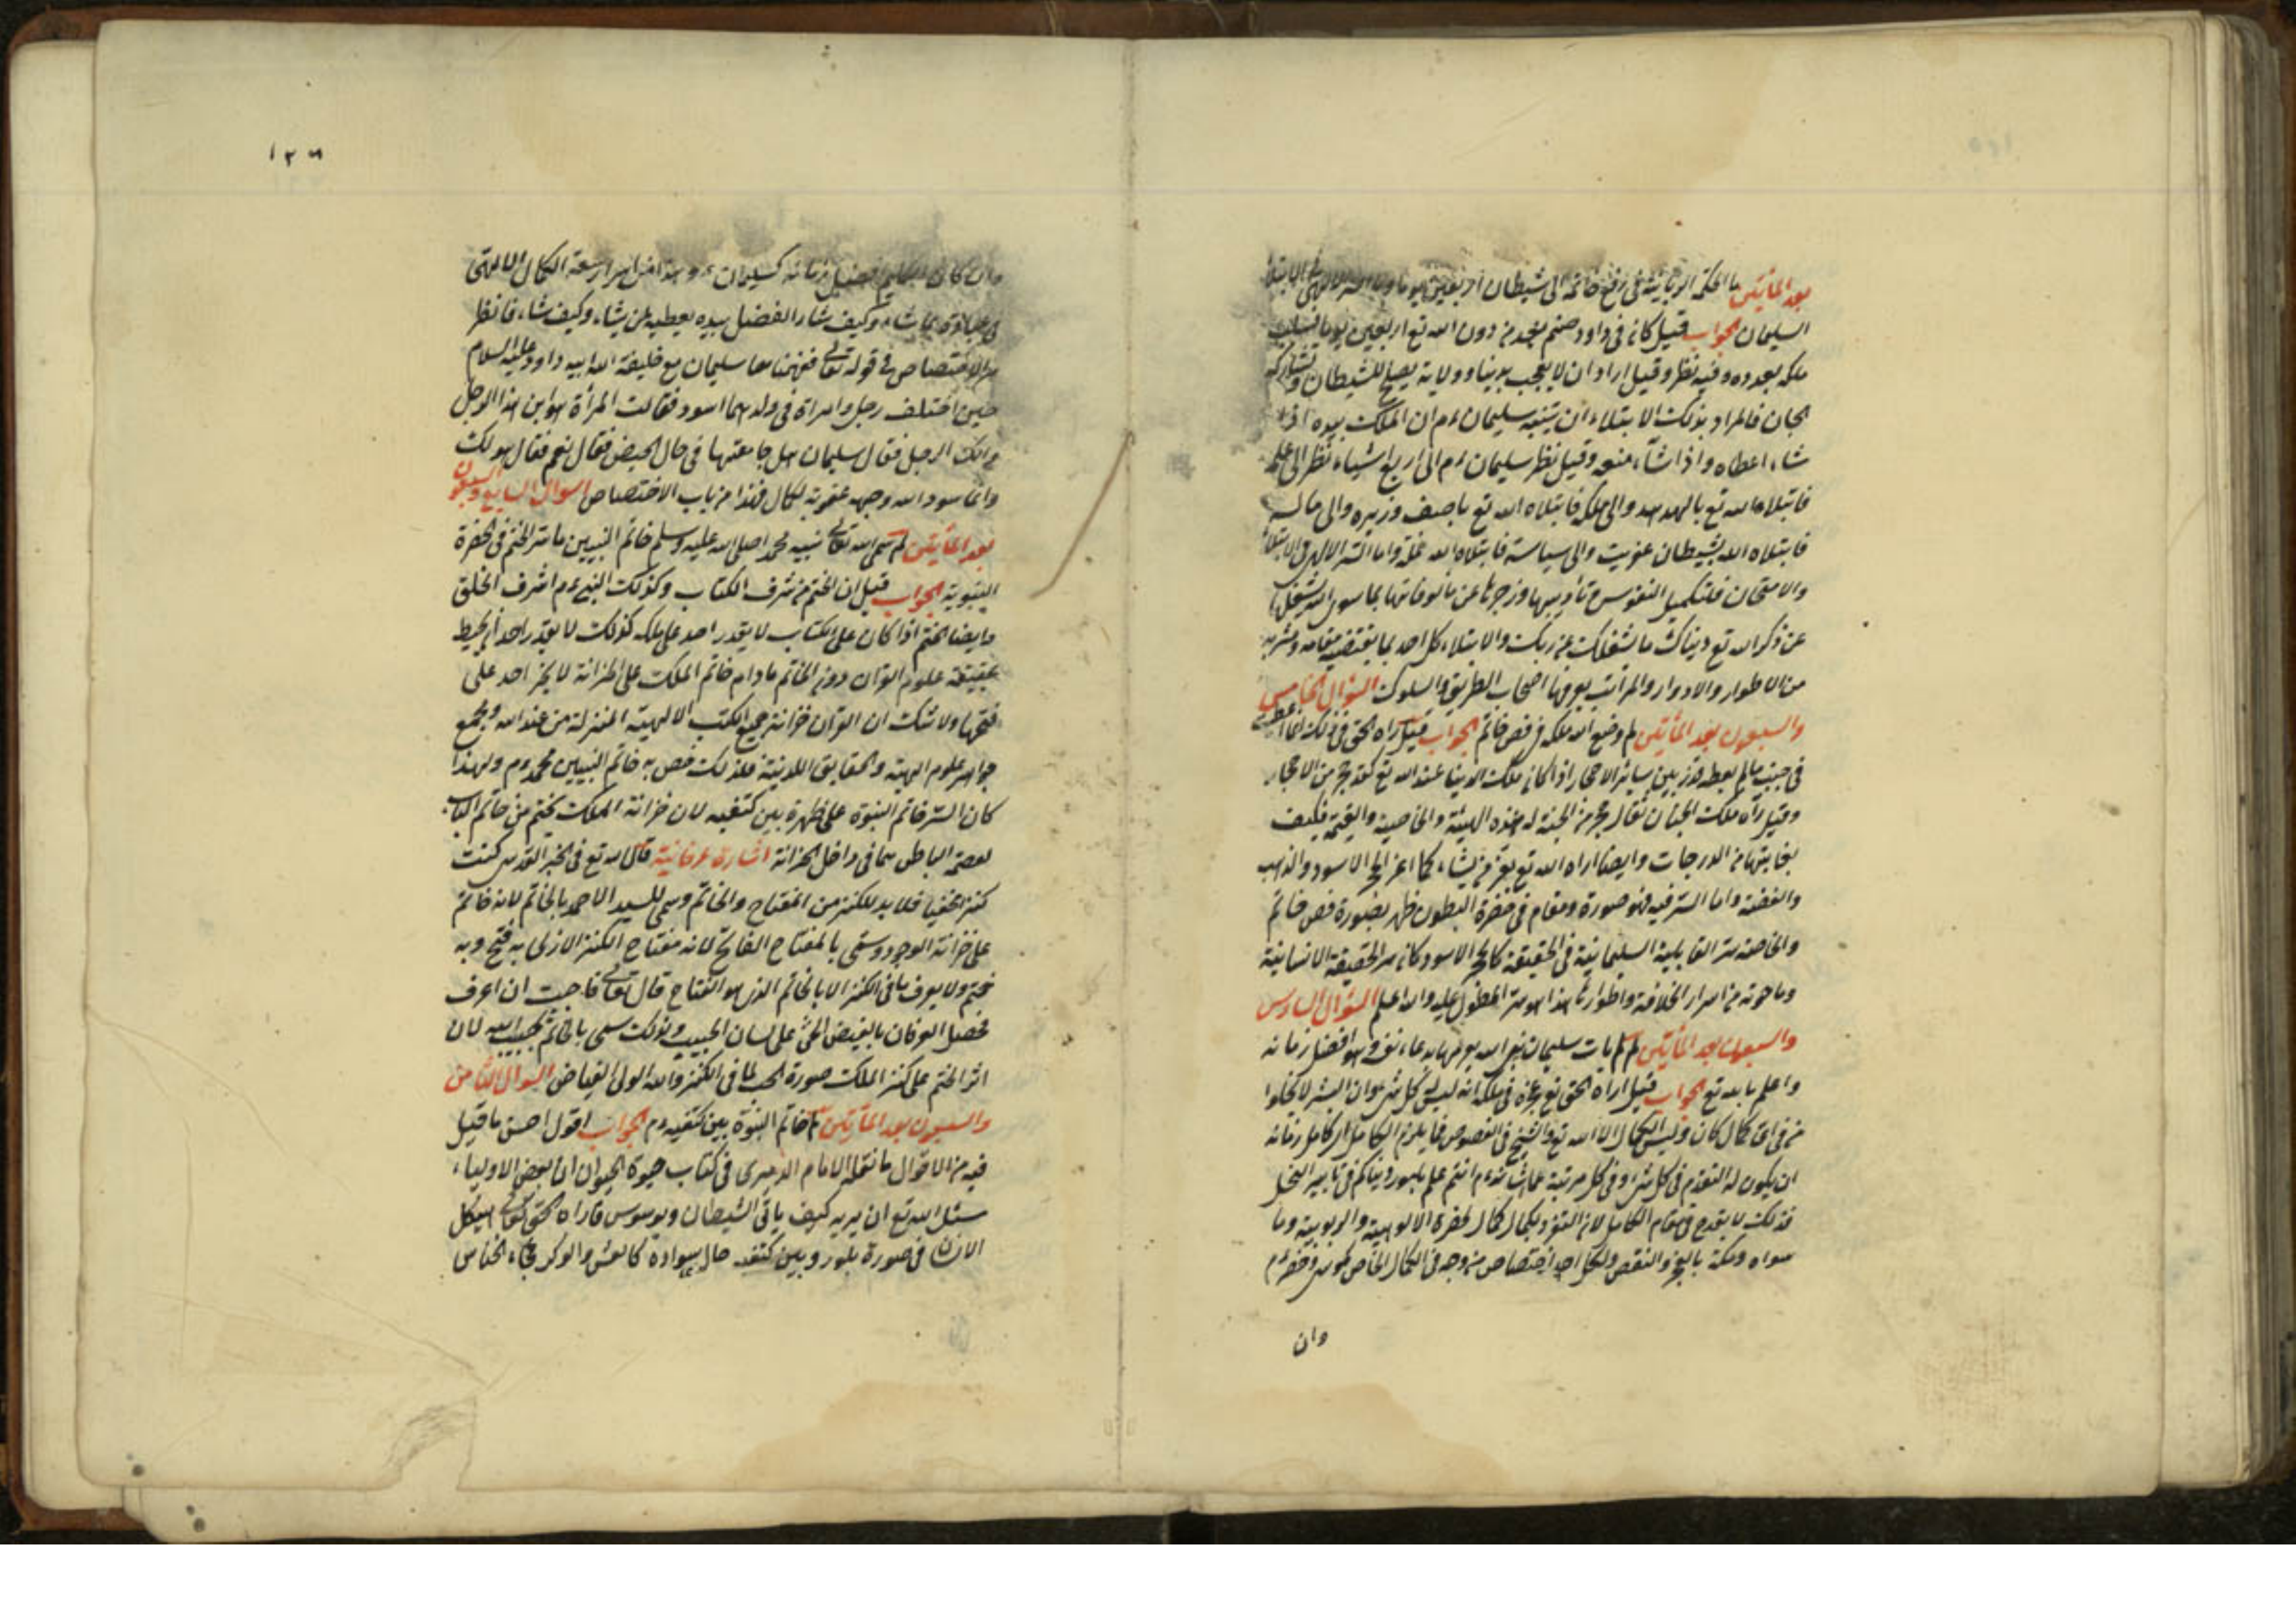 بعد المأتين ما الحكمة الربانية في دفع خاتمه الى شيطان اربعين يوما وما السر الالهي في الابتلاء
السليمان الجواب قيل كان في داود صنم يعبد من دون الله تع اربعين يوما فسلب
ملكه بعدده وفيه نظر وقيل اراد ان لا يعجب بدنيا وولاية يصلح للشيطان وتشاركه
الجان فالمراد بذلك الابتلاء ان يتنبه سليمان ءم ان الملك بيده اذا
شاء اعطاه واذا شاء منعه وقيل نظر سليمان ءم الى اربع اشياء نظر الى علمه
فابتلاه الله تع بالهدهد والى ملكه فابتلاه الله تع باصف وزيره والى ماله
فابتلاه الله بشيطان عفريت والى سياسة فابتلاه الله نملة واما السر الالهي في الابتلاء
والامتحان فلتكميل النفوس وتأديبها وزجرها عن مألوفاتها بما سوى الله يشغل
عن ذكر الله تع دنياك ما شغلك عن ربك والابتلاء كل احد بما يقتضيه مقامه ومشربه
من الاطوار والادوار والمراتب يعرفها اصحاب الطريق والسلوك السؤال الخامس
والسبعون بعد المأتين لم وضع الله ملكه في فص خاتم الجواب قيل اراه الحق في ذلك ان ما اعطيت
في جنب ما لم يعطه قدر بين سائر الاحجار اذا كان ملك الدنيا عند الله تع كقدر حجر من الاحجار
وقيل رآه ملك الجنان فقال حجر من الجنة له هذه الهيئة والخاصية والقيمة فكيف
بغايتها من الدرجات وايضا اراه الله تع يعز من يشاء كما اعز الحجر الاسود والذهب
والفضة واما السر فيه فهو صورة ومقام في حضرة البطون ظهر بصورة فص خاتم
والخاصة سر القابلية السليمانية في الحقيقة كالحجر الاسود كان سر الحقيقة الانسانية
وما حوته من اسرار الخلافة واطوارها هذا هو سر المطول عليه والله اعلم السؤال السادس
والسبعون بعد المأتين لم مات سليمان نبي الله بدعاء وهو افضل زمانه
واعلم بالله تع الجواب قيل اراه الحق تع عجزه في ملكه انه ليس كل شئ وان البشر لا يخلوا
من في اى كمال كان وليس الكمال الا الله تع والشيخ في الفصوص فما يلزم الكامل ان كامل زمانه
ان يكون له التقدم في كل شئ وفي كل مرتبة انتم اعلم بامور دنياكم في تابير النخل
فذلك لا يقدح في مقام الكامل لان التفرد بكمال كمال حضرة الالوهية والربوبية وما
سواه وسمة بالعجز والنقص ولكل احد اختصاص من وجه في الكمال الخاص كموسى وخضر ءم
وان
١٣٦
وان كان الكليم افضل زمانه كسليمان ءم وهذا من اسرار سعة الكمال الالهي
في عباده بما شاء وكيف شاء الفضل بيده يعطيه من يشاء وكيف شاء فانظر
سر الاختصاص في قوله تعالى ففهمناها سليمان مع خليفة الله ابيه داود عليه السلام
حين اختلف رجل وامراة في ولد لهما اسود فقالت المرأة هو ابن هذا الرجل
وانكر الرجل فقال سليمان هل جامعتها في حال الحيض فقال نعم فقال هو لك
وانما سود الله وجهه عقوبة لكما ل فهذا من باب الاختصاص السؤال السابع والسبعون
بعد المأتين لم سمى الله تعالى نبيه محمدا صلى الله عليه وسلم خاتم النبيين ما سر الختم في الحضرة
النبوية الجواب قيل ان الختم من شرف الكتاب وكذلك النبي ءم اشرف الخلق
وايضا الختم اذا كان على الكتاب لا يقدر احد على فكه كذلك لا يقدر احد ان يحيط
بحقيقة علوم القرآن دون الخاتم مادام خاتم الملك على الخزانة لا يجز احد على
فتحها ولا شك ان القرآن خزانة جميع الكتب الالهية المنزلة من عند الله ومجمع
جواهر علوم الهية والحقايق اللدنية فلذلك خص به خاتم النبيين محمد ءم ولهذا
كان السر خاتم النبوة على ظهره بين كتفيه لان خزانة الملك يختم من خاتم الباب
لعصمة الباطن بما في داخل الخزانة اشارة عرفانية قال الله تع في الخبر القدسي كنت
كنزا مخفيا فلا بد للكنز من المفتاح والخاتم وسمى السيد الاحمد بالخاتم لانه خاتم
على خزانة الوجود وسمى بالمفتاح الفاتح لانه مفتاح الكنز الازلي به فتح وبه
ختم ولا يعرف ما في الكنز الا بالخاتم الذي هو المفتاح قال تعالى فاحببت ان اعرف
فحصل العرفان بالفيض الحبي على لسان الحبيب ولذلك سمى بالخاتم حبيب الله لان
اثر الختم على كنز الملك صورة الحب لما في الكنز والله الولي الفياض السؤال الثامن
والسبعون بعد المأتين لم خاتم النبوة بين كتفيه ءم الجواب اقول احسن ما قيل
فيه من الاقوال ما نقله الامام الدميرى في كتاب حيوة الحيوان ان بعض الاولياء
سئل الله تع ان يريه كيف يأتي الشيطان ويوسوس فاراه الحق تعالى هيكل
الانسان في صورة بلور وبين كتفيه خال سواده كالعش والوكر فجاء الخناس